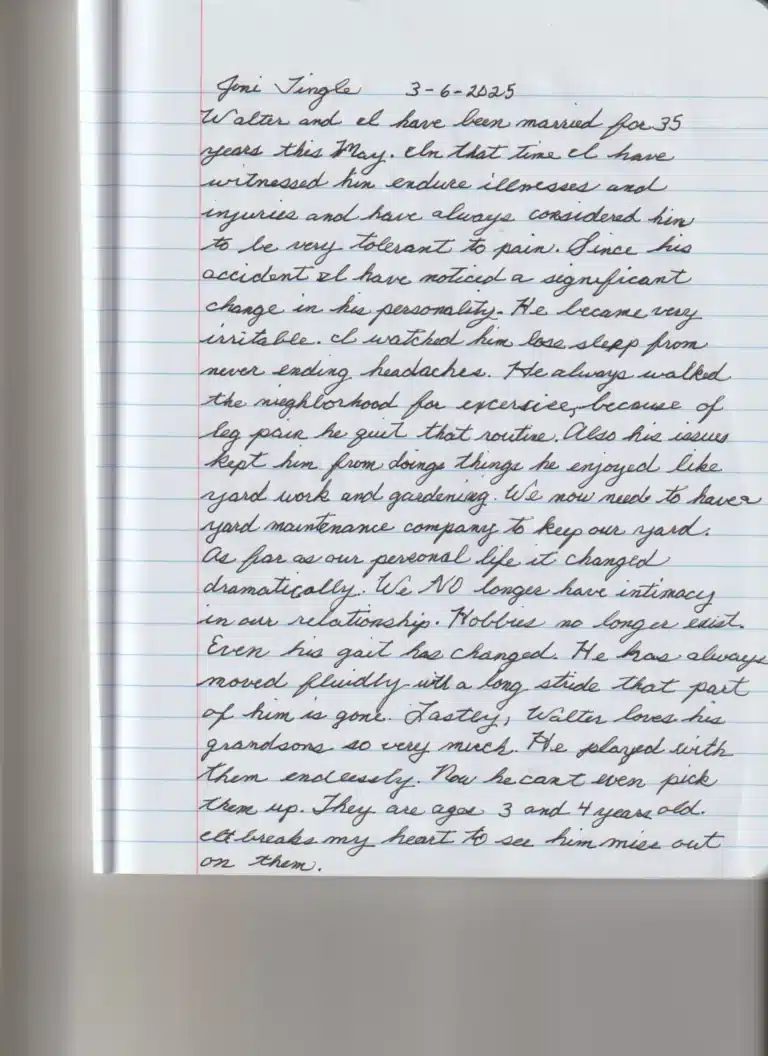 Joni Tingle 3-6-2025
Walter and I have been married for 35
years this May. In that time I have
witnessed him endure illnesses and
injuries and have always considered him
to be very tolerant to pain. Since his
accident I have noticed a significant
change in his personality. He became very
irritable. I watched him lose sleep from
never ending headaches. He always walked
the nieghborhood for excersice, because of
leg pain he quit that routine. Also his issues
kept him from doings things he enjoyed like
yard work and gardening. We now need to have a
yard maintenance company to keep our yard.
As far as our personal life it changed
dramatically. We NO longer have intimacy
in our relationship. Hobbies no longer exist.
Even his gait has changed. He has always
moved fluidly with a long stride that part
of him is gone. Lastly, Walter loves his
grandsons so very much. He played with
them endlessly. Now he cant even pick
them up. They are ages 3 and 4 years old.
It breaks my heart to see him miss out
on them.